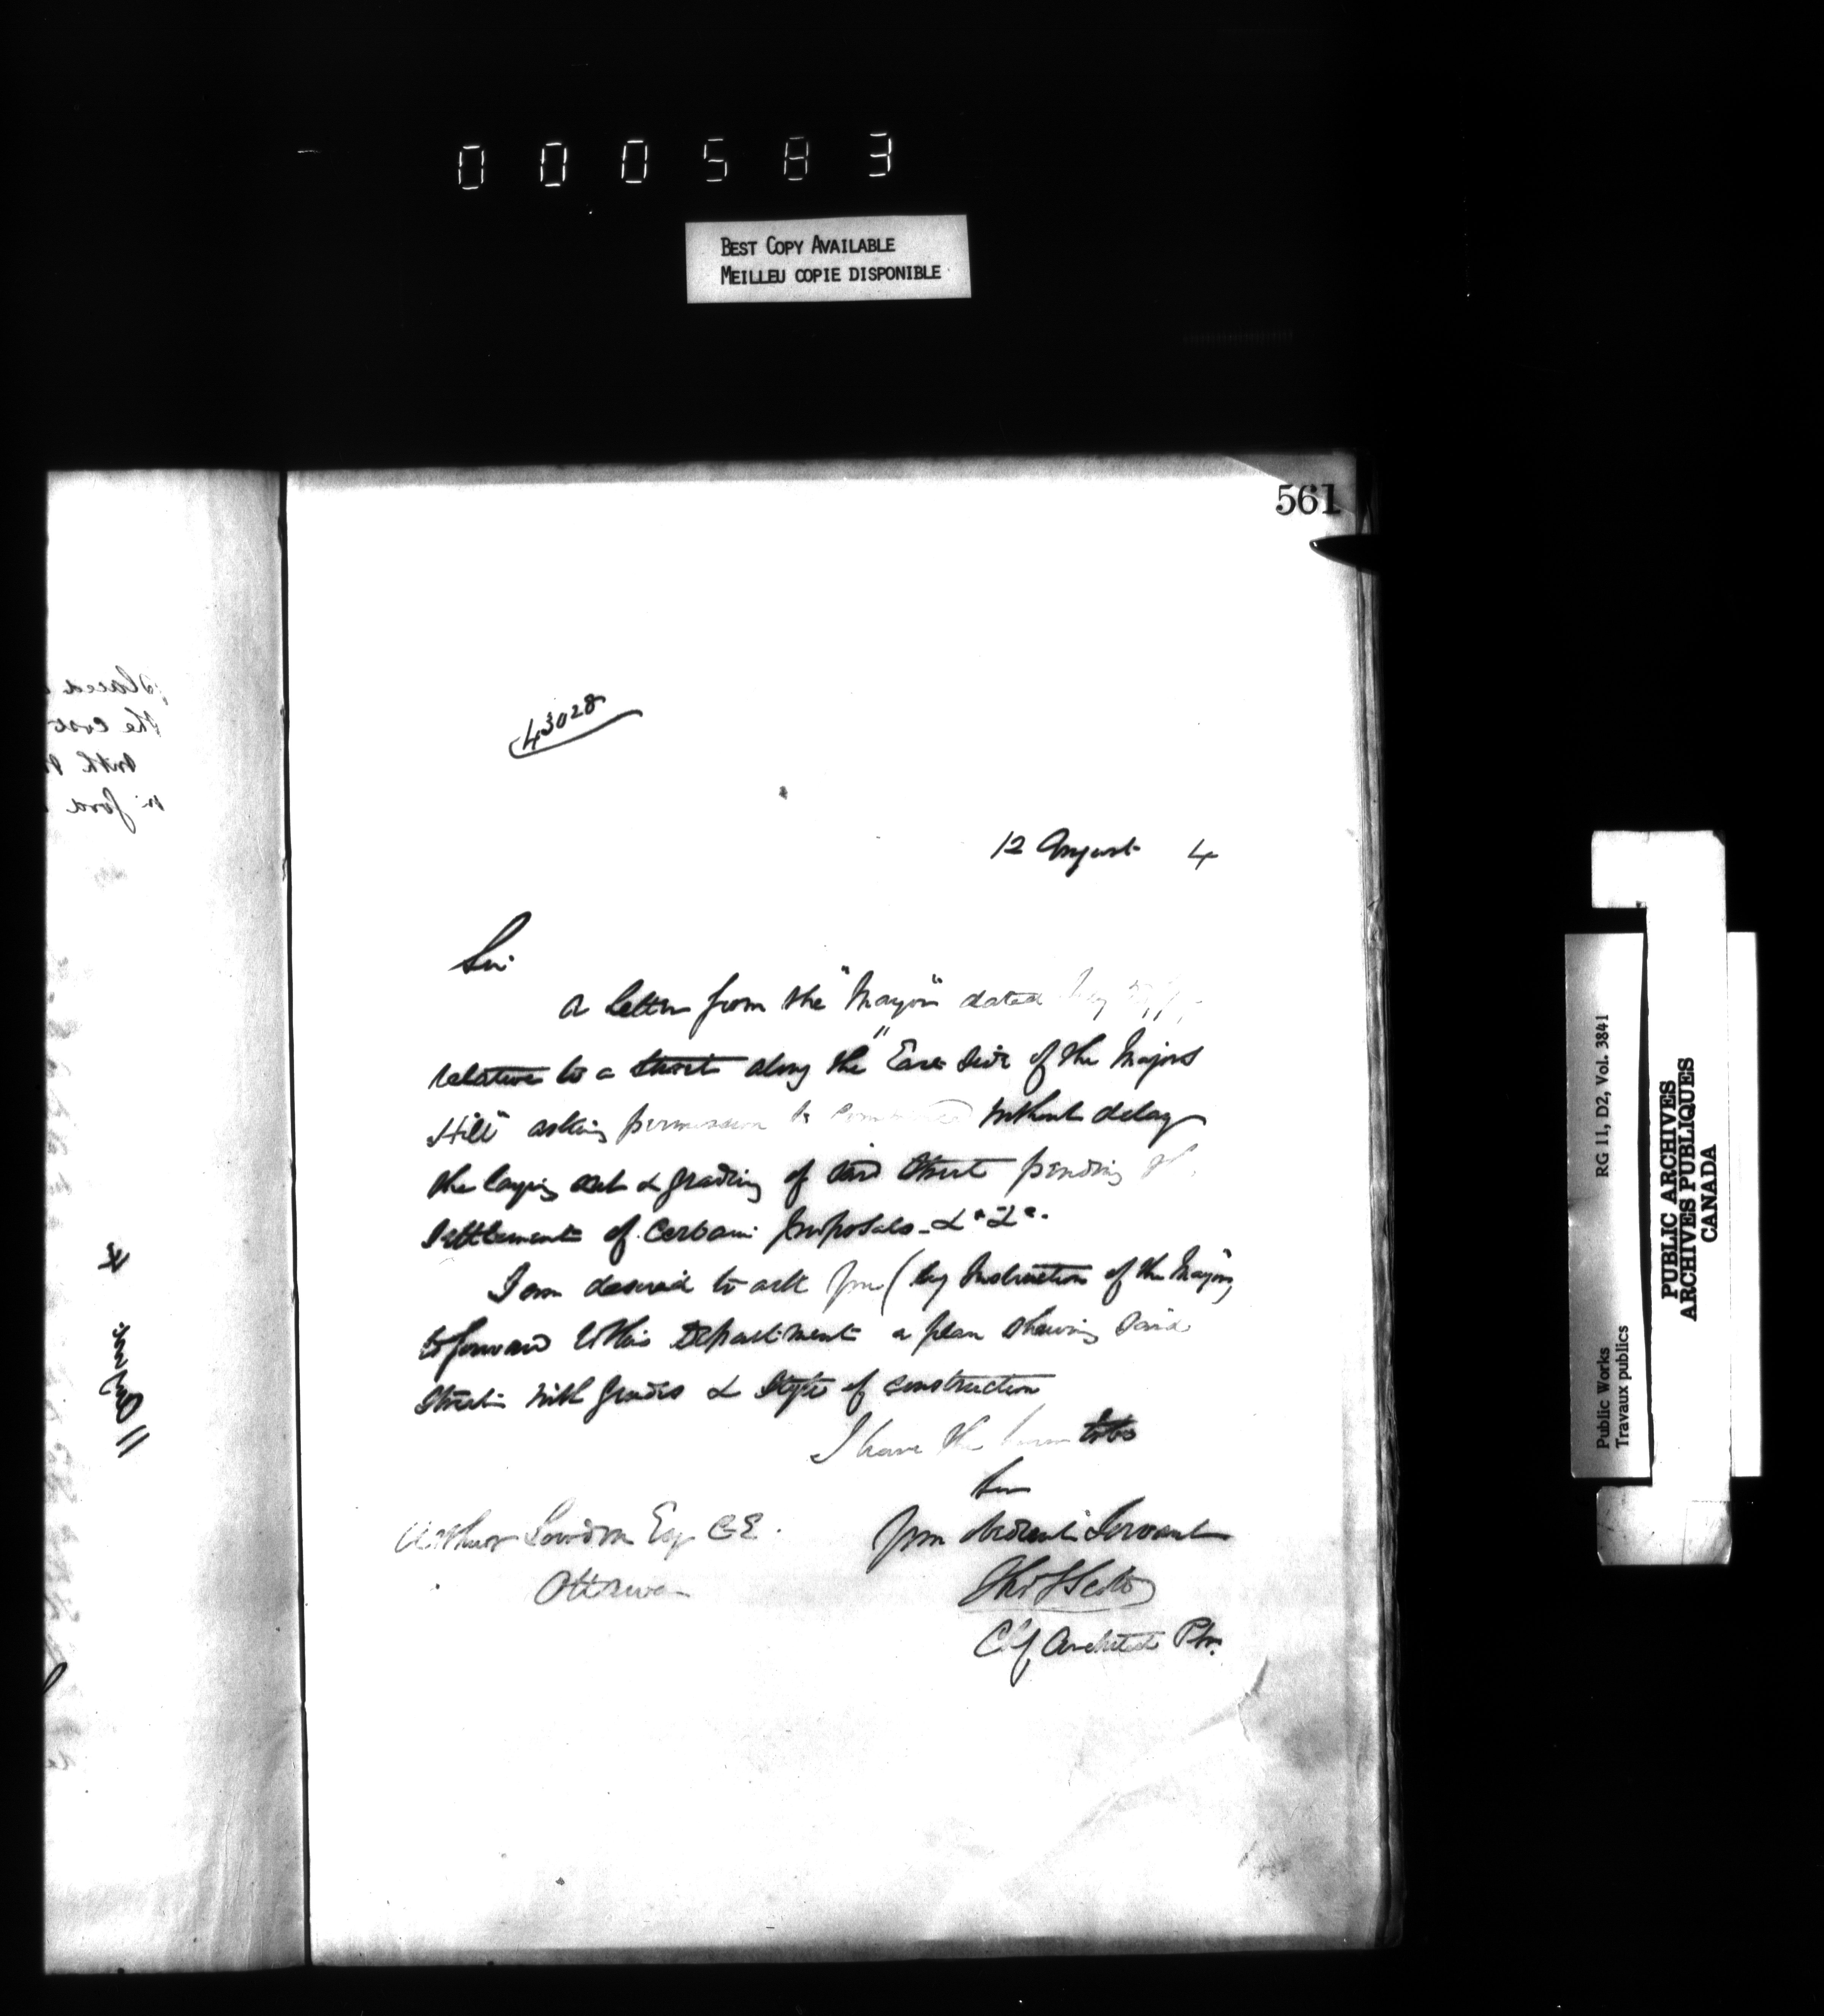 000583
BEST COPY AVAILABLE
MEILLEU COPIE DISPONIBLE
561
43028
12 August 4
Sir
A letter from the "Mayor" dated
relative to a Street along the "East side of the Majors
Hill" asking permission to without delay
the laying out & grading of said Street pending
Settlement of Certain proposals - &c &c.
I am desired to ask you (by Instruction of the Mayor)
to forward to this Department a plan showing said
Street with grades & style of construction
I have the honor to be
Sir
Your obedient Servant
Thos S Scott
Chf Architect P.W.
Arthur Esq C.E.
Ottawa
11 August 4
Public Works
Travaux publics
RG 11, D2, Vol. 3841
PUBLIC ARCHIVES
ARCHIVES PUBLIQUES
CANADA